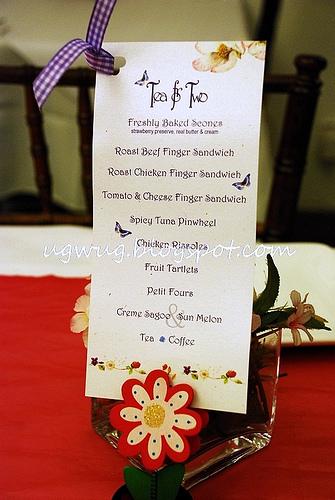 Tea & Two
Freshly Baked Scones
strawberry preserve, real butter & cream
Roast Beef Finger Sandwich
Roast Chicken Finger Sandwich
Tomato & Cheese Finger Sandwich
Spicy Tuna Pinwheel
ugwug.blogspot.com
Chicken Rissoles
Fruit Tartlets
Petit Fours
Creme Sagoo & Sun Melon
Tea Coffee